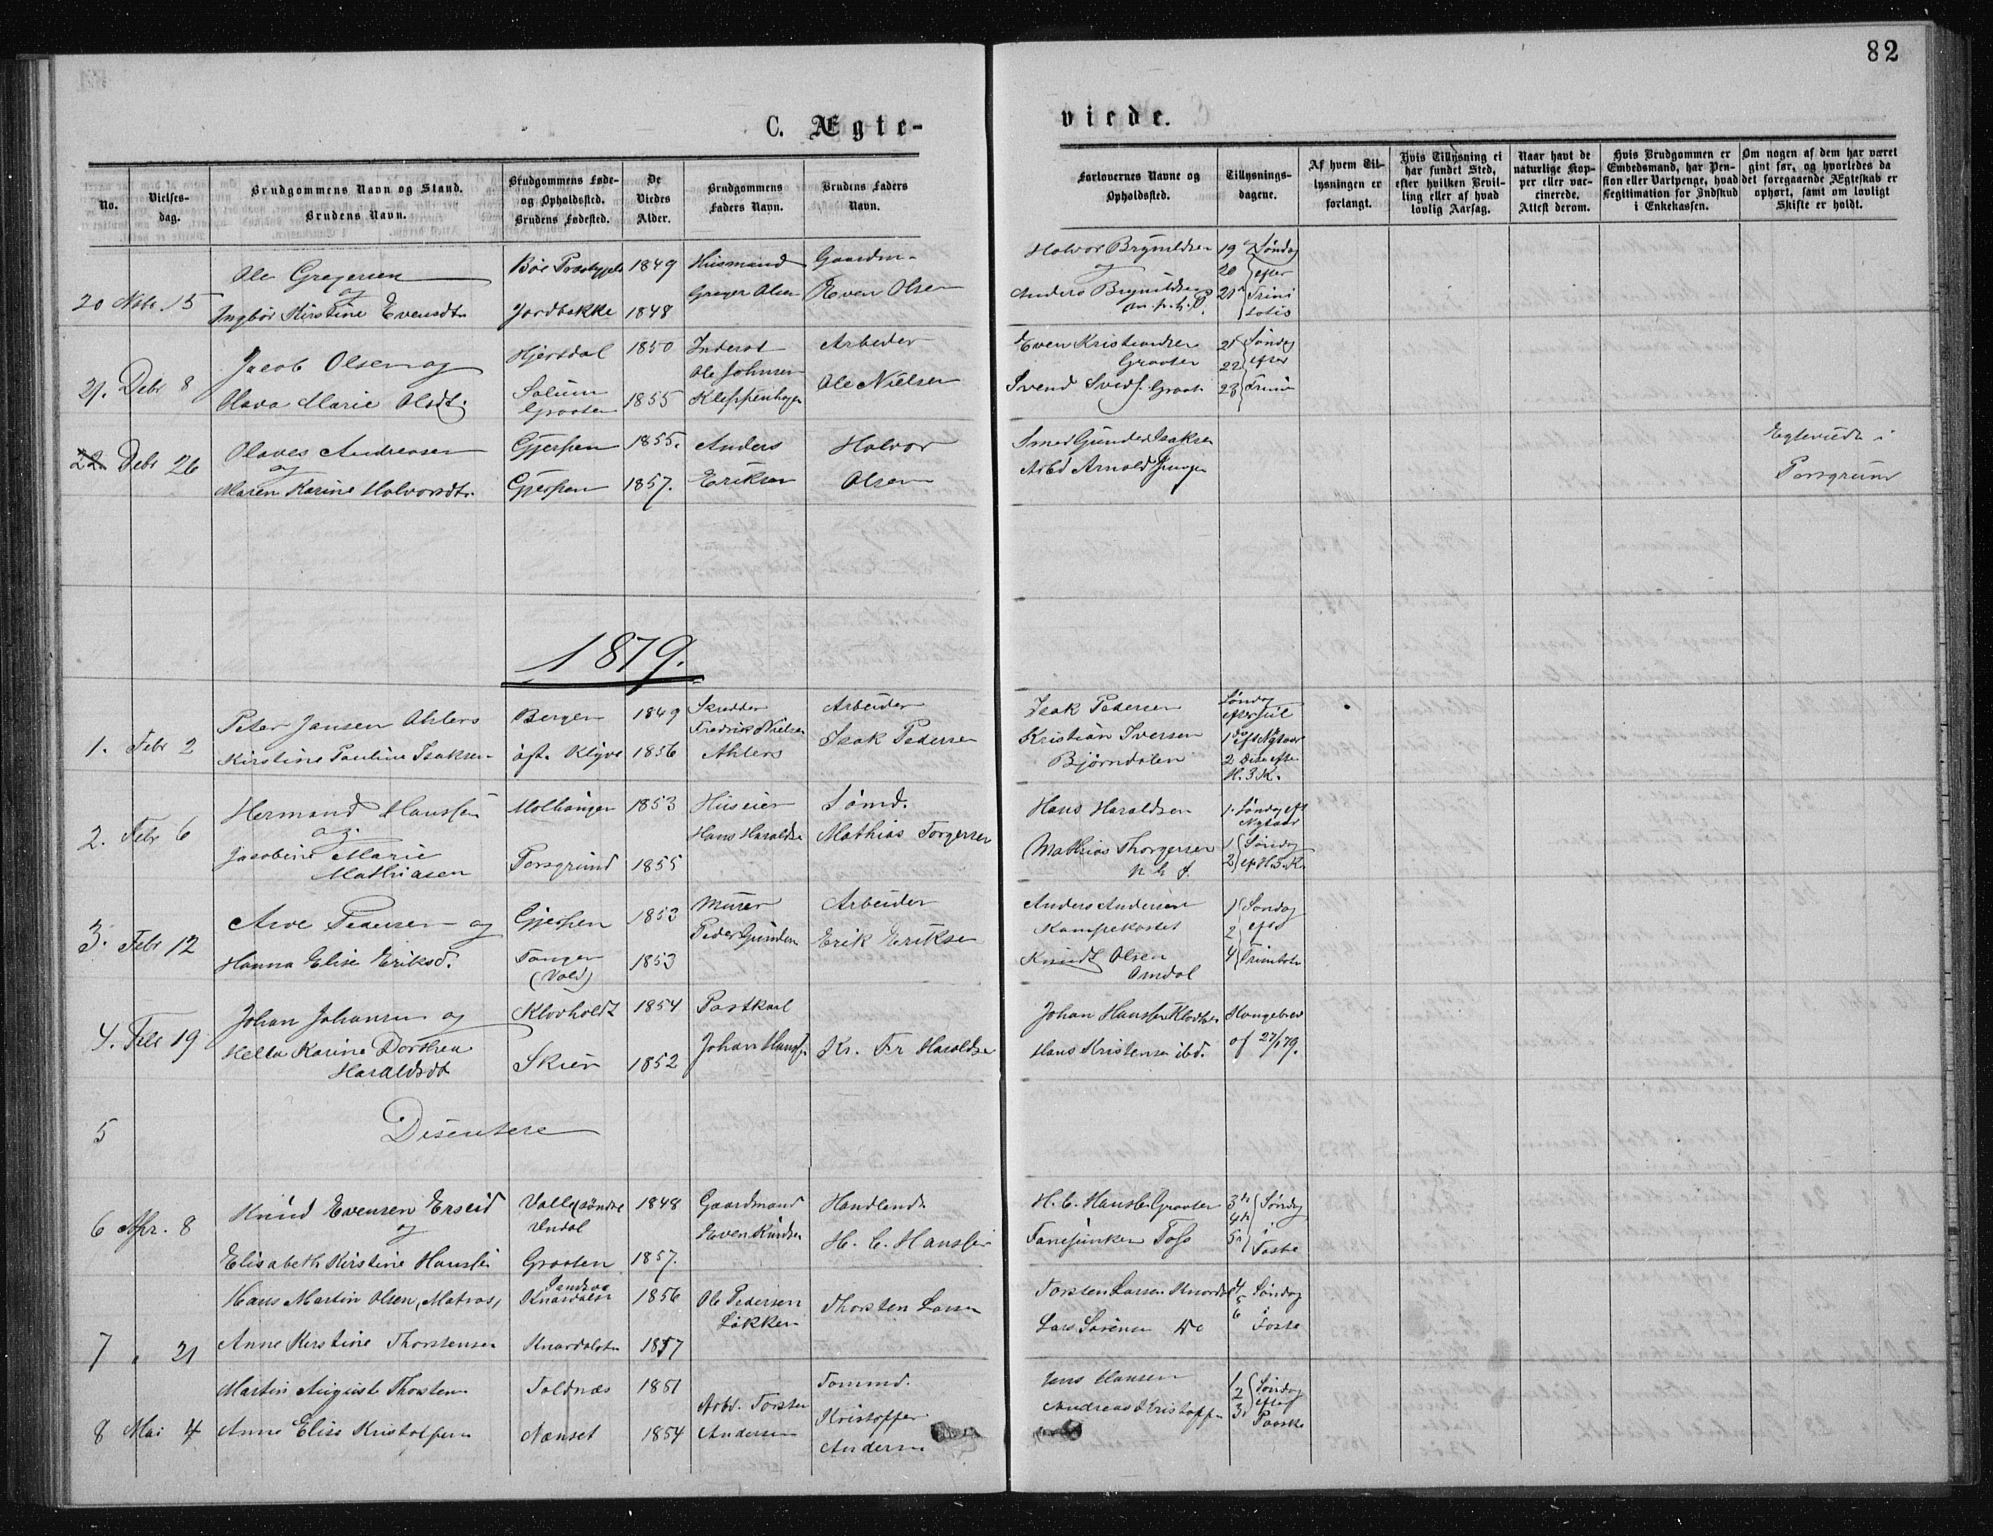 82
C. Ægte-
viede.
No.
Vielses-
dag.
Brudgommens Navn og Stand.
Brudens Navn.
Brudgommens Føde-
og Opholdssted.
Brudens Fødested.
De
Viedes
Alder.
Brudgommens
Faders Navn.
Brudens Faders
Navn.
Forlovernes Navne og
Opholdssted.
Tillysnings-
dagene.
Af hvem Til-
lysningen er
forlangt.
Hvis Tillysning ei
har fundet Sted,
efter hvilken Bevil-
ling eller af hvad
lovlig Aarsag.
Naar havt de
naturlige Kop-
per eller vac-
cinerede.
Attest derom.
Hvis Brudgommen er
Embedsmand, har Pen-
sion eller Vartpenge, hvad
Legitimation for Indskud
i Enkekassen.
Om nogen af dem har været
gift før, og hvorledes da
det foregaaende Ægteskab er
ophørt, samt om lovligt
Skifte er holdt.
20 Nbr. 15
Ole Gregersen
og
Ingbør Kirstine Evensdtr
Bøe
Jordbakke
1849
1848
Husmand
Greger Olsen
Gaardm.
Even Olsen
Halvor Brynildsen
og
Anders Brynildsen
19 Søndag
20 efter
21 Trini
tatis
21. Debr 8
Jacob Olsen og
Olava Marie Olsdtr
Hjertdal
Solum
Graaten
1850
1855
Inderst
Ole Johnsen
Kleppenhagen
Arbeider
Ole Nielsen
Even Kristiansen
Graaten
Svend Graaten
21 Søndag
22 efter
23 Trini
22 Debr 26
Olaves Andreasen
og
Maren Karine Halvorsdtr.
Gjerpen
Gjerpen
1855.
1857.
Anders
Eriksen
Halvor
Olsen
Smed Gunder Isaksen
Arbd Arnold
Egteviede i
Porsgrund
1879.
1. Febr 2
Peter Jansen Ahlers
Kirstine Pauline Isaksen
Bergen
øst. Klyve
1849
1856
Skredder
Fredrik Nielsen
Ahlers
Arbeider
Isak Pedersen
Isak Pedersen
Kristian Iversen
Bjørndalen
Søndag
efter Jul
1 eft Nytaar
2 Do efter
H. 3 K.
2. Febr 6
Hermand Hanssen
og
Jacobine Marie
Mathiasen
Molhaugen
Porsgrund
1853
1855
Huseier
Hans Haraldsen
Sømd.
Mathias Torgersen
Hans Haraldsen
Mathias Thorgersen
1. Søndag eft
Nytaar
1 Søndag
2 eft H. 3. K.
3. Febr 12
Arve Pedersen og
Hanna Elise Eriksd.
Gjerpen
Tangen
(Vold)
1853
1853
Murer
Peder Gundersen
Arbeider
Erik Eriksen
Anders Andersen
Kampekastet
Knudt Olsen
Omdal
1 Søndag
2 efter
4 Trinitatis
4. Febr 19
Johan Johansen og
Karine Dorthea
Haraldsdt
Klovholdt
Skien
1854
1852
Postkarl
Johan Hansen
Kr. Fr Haraldsen
Johan Hanssen Klovholt
Hans Kristensen ibd.
Kongebrev
af 27/1 79.
5
Disentere
6 Apr. 8
Knud Evensen Erseid
og
Elisabeth Kirstine Hanssen
Valle søndre
Undal
Graaten
1848
1857.
Gaardmand
Even Knudsen
Handlende
H. C. Hanssen
H. C. Hanssen Graaten
Foss
3die Søndag
4de i
5te Faste
7 " 21
Hans Martin Olsen, Matros,
Anne Kirstine Thorstensen
Knardalst
Knardalst
1856
1857
Ole Pedersen
Løkken
Thorsten Larsen
Torsten Larsen Knardal
Lars Sørensen Do
4 Søndag
5 i
6 Faste
8 Mai 4
Martin August Thorsten
Anne Elise Kristoffersen
Toldnæs
Nænset
1851
1854
Arbd. Torsten
Andersen
Tømmd.
Kristoffer
Andersen
Jens Hansen
Andreas Kristoffersen
1 Søndag
2 efter
3 Paaske